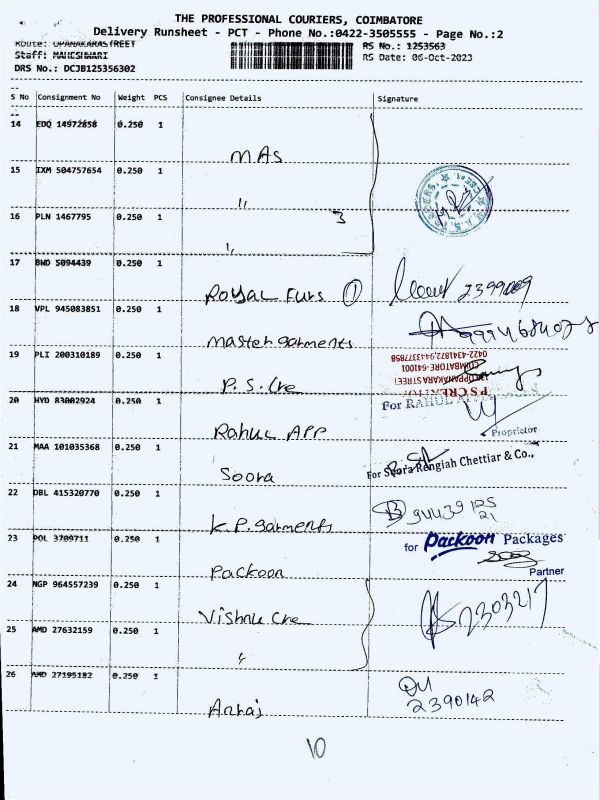 THE PROFESSIONAL COURIERS, COIMBATORE
Delivery Runsheet - PCT - Phone No.:0422-3505555 - Page No.:2
Route: OPANAKARASTREET
RS No.: 1253563
Staff: MAHESHWARI
RS Date: 06-Oct-2023
DRS No.: DCJB125356302
S No Consignment No Weight PCS Consignee Details Signature
14 EDQ 14972858 0.250 1
MAS
15 IXM 504757654 0.250 1
〃
16 PLN 1467795 0.250 1
3
〃
17 BWD 5094439 0.250 1
Royal Furs 1
18 VPL 945083851 0.250 1
Master garments
19 PLI 200310189 0.250 1
0422-4341872,9443377858
COIMBATORE-641001
OPPANAKARA STREET
P S CREATION
P.S. Cre
20 HYD 83002924 0.250 1
For RAHUL
Proprietor
Rahul APP
21 MAA 101035368 0.250 1
For Soora Rengiah Chettiar & Co.,
Soora
22 DBL 415320770 0.250 1
94439 125
21
K.P. garments
23 POL 3709711 0.250 1
for Packoon Packages
Partner
Packoon
24 NGP 964557239 0.250 1
Vishnu Cre
2303217
25 AMD 27632159 0.250 1
〃
26 AMD 27195182 0.250 1
2390142
10